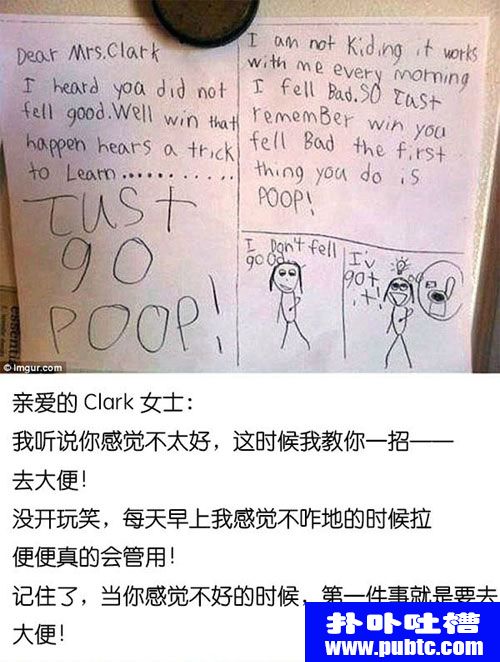 Dear Mrs.Clark
I heard you did not
fell good.Well win that
happen hears a trick
to Learn...........
Just
go
POOP!
I am not Kiding it works
with me every morning
I fell Bad.SO Just
rememBer win you
fell Bad the first
thing you do is
POOP!
I Don't fell
good.
I'v
got
it!
essenti
© imgur.com
亲爱的 Clark 女士：
我听说你感觉不太好，这时候我教你一招——
去大便！
没开玩笑，每天早上我感觉不咋地的时候拉
便便真的会管用！
记住了，当你感觉不好的时候，第一件事就是要去
大便！
扑卟吐槽
www.pubtc.com